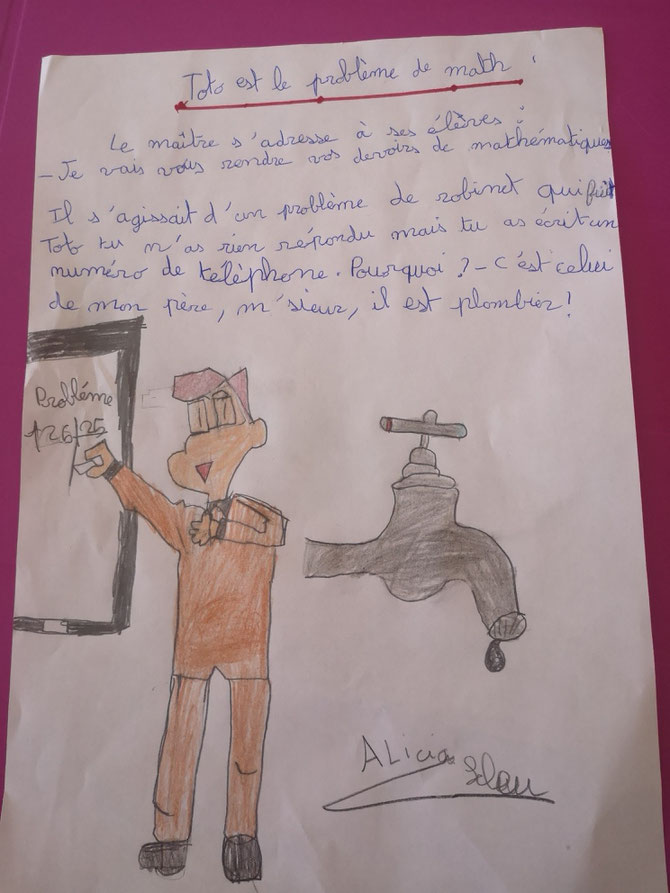 Toto est le problème de math
Le maître s'adresse à ses élèves :
- Je vais vous rendre vos devoirs de mathématiques
Il s'agissait d'un problème de robinet qui fuit
Toto tu m'as rien répondu mais tu as écrit un
numéro de téléphone. Pourquoi ? - C'est celui
de mon père, m'sieur, il est plombier !
Probléme
126/25
ALicia